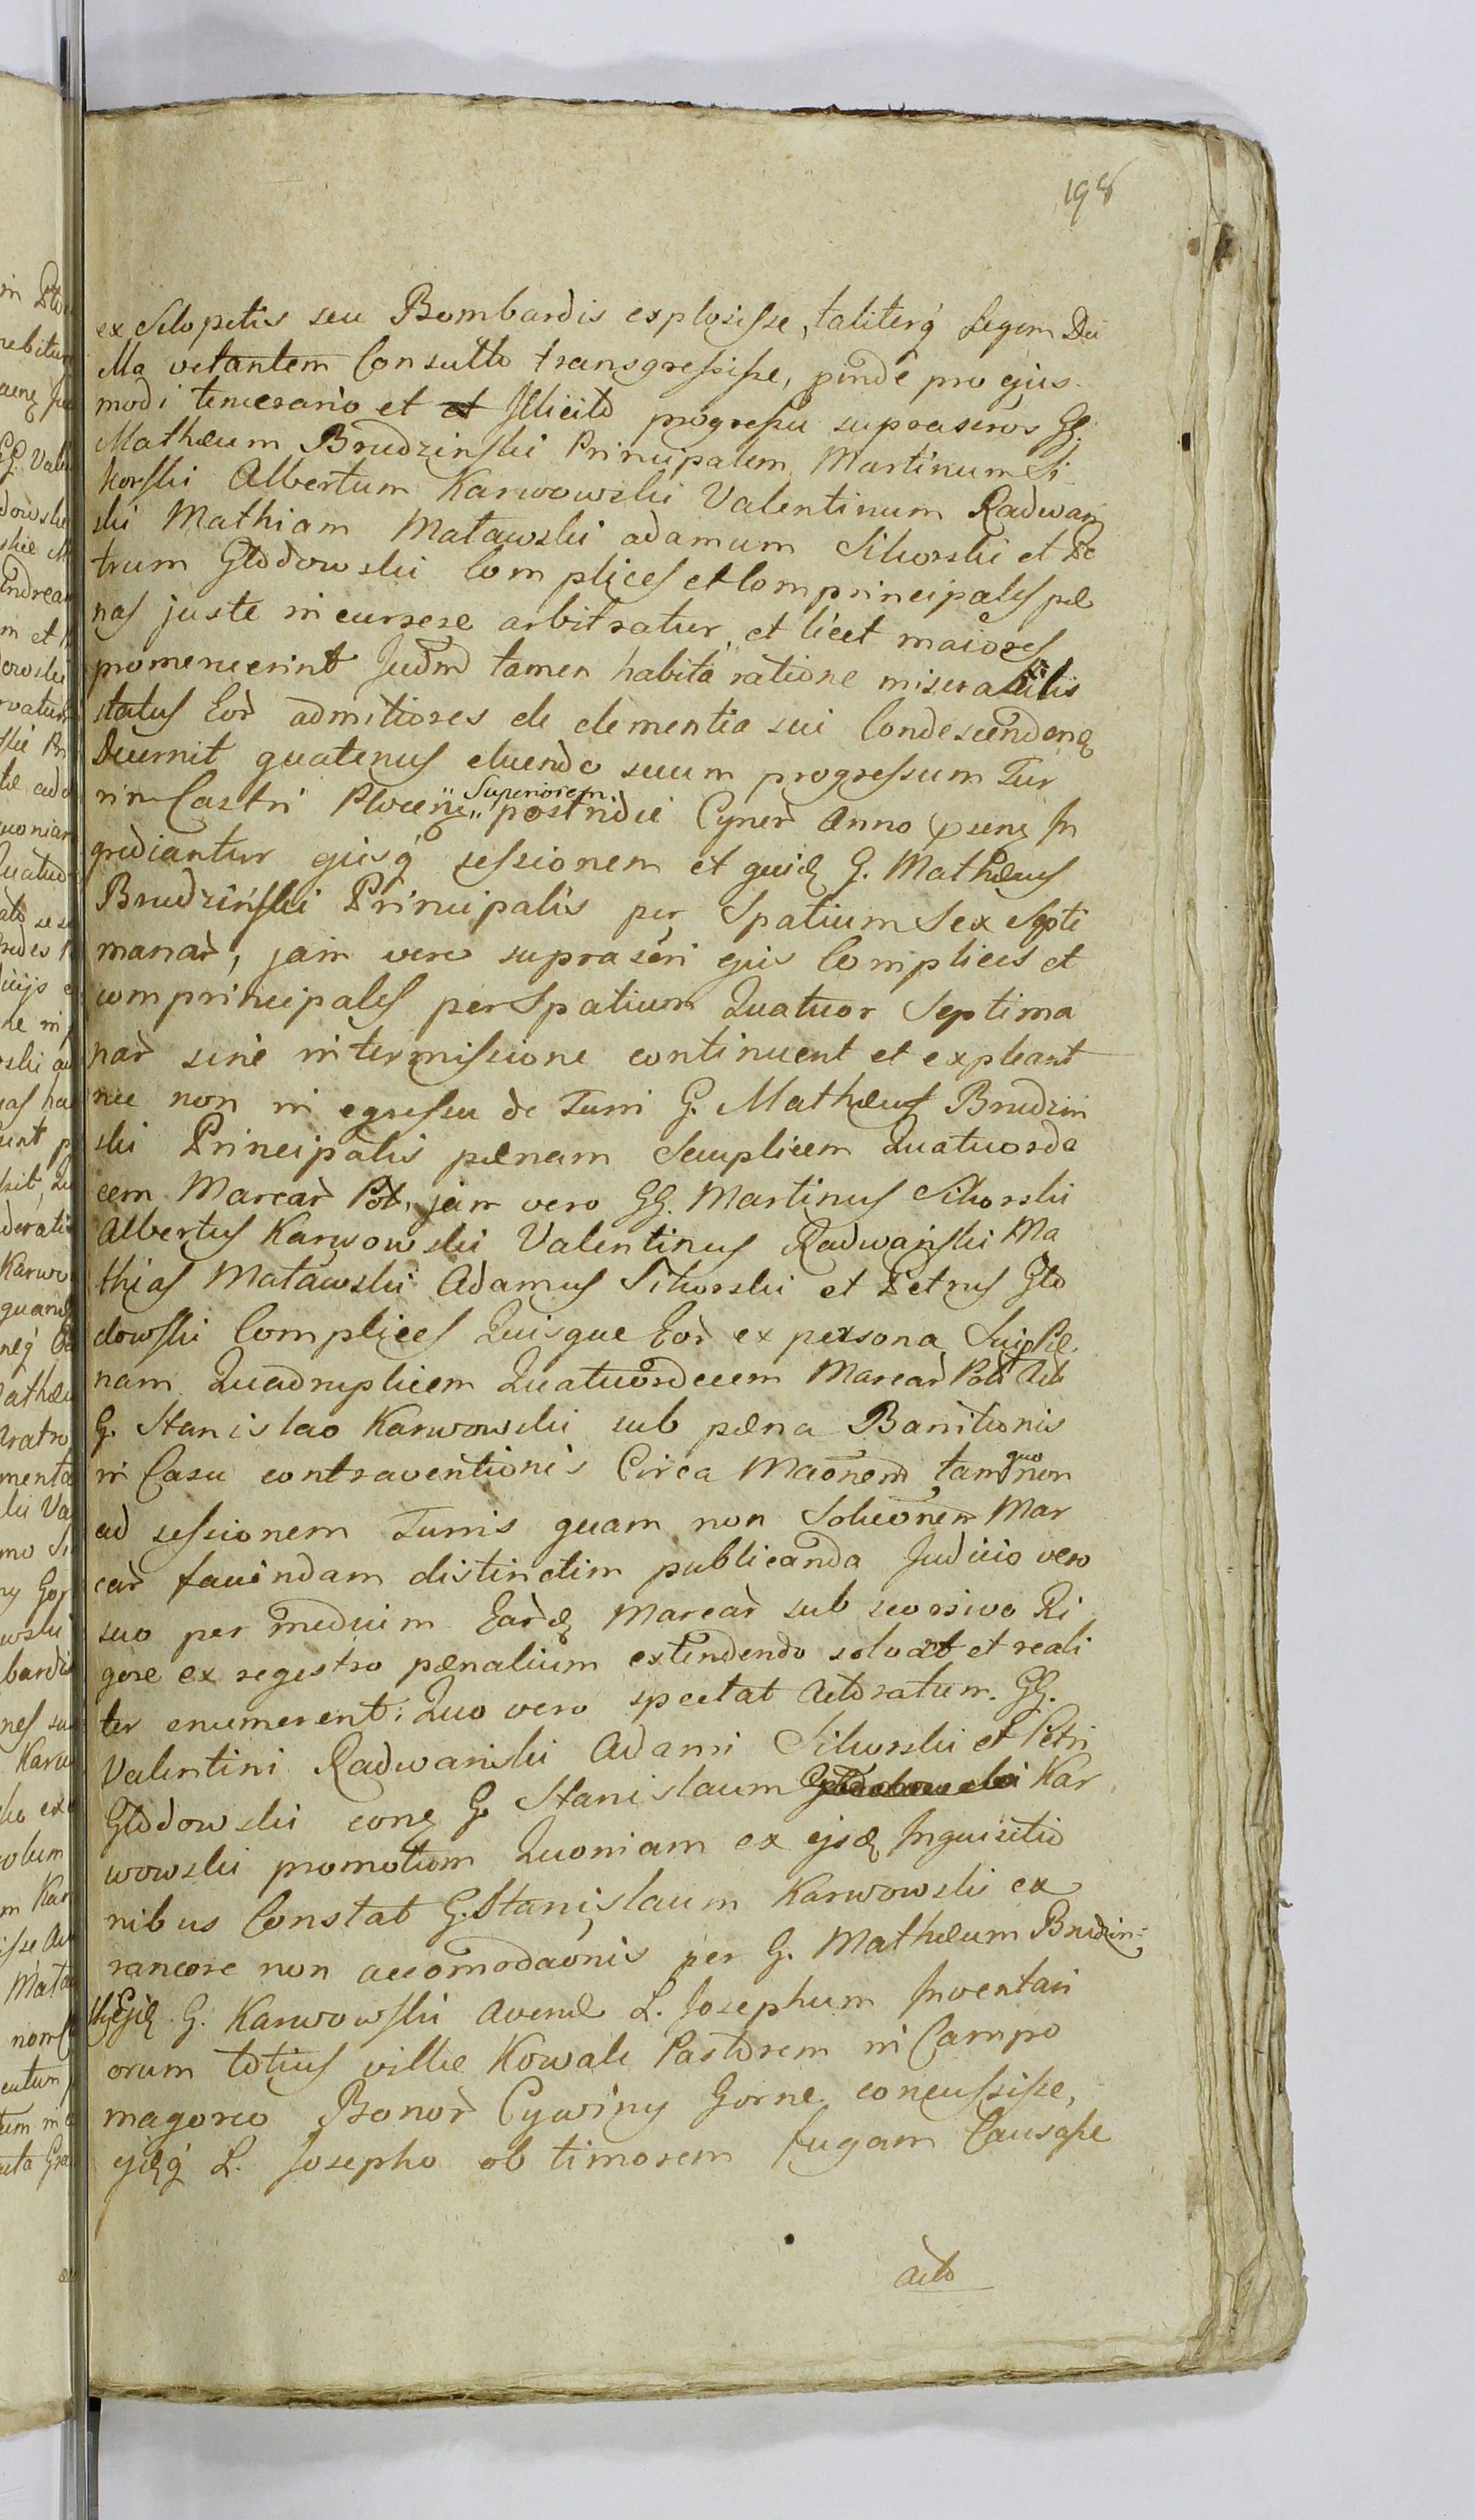 198
ex Sclopetis seu Bombardis explosisse, taliterq̃ Legem Du
ella vetantem Consulto transgressisse, pende pro ejus
modi temerario et et Illicito progressu suprascros GG.
Mathæum Brudzinski Principalem, Martinum Si
korski Albertum Karwowski Valentinum Radwan
ski Mathiam Matawski adamum Sikorski et Pe
trum Głodowski Complices et Comprincipales pæ
nas juste incurrere arbitratur, et licet maiores
promeruerint Judm̃ tamen habita ratione miserabilis
status Eor̃ ad mitiores de clementia sui Condescendenȩ
Decernit quatenus eluendo suum progressum Tur
rin Castri Plocenȩ Superiorem postridie Cyner̃ Anno pr̃senȩ In
grediantur ejusq̃ sessionem et quidȩ G. Mathæus
Brudziński Principalis per Spatium Sex Septi
manar̃, jam vero suprascri ejus Complices et
comprincipales per Spatium Quatuor Septima
nar̃ sine intermissione continuent et expleant
nec non in egressu de Turri G. Mathæus Brudzin
ski Principalis pænam Scuplicem Quatuorde
cem Marcar̃ Pol, jam vero GG. Martinus Sikorski
Albertus Karwowski Valentinus Radwański Ma
thias Matawski Adamus Sikorski et Petrus Gło
dowski Complices Quisque Eor̃ ex persona Sui Pæ
nam Quadruplicem Quatuordecem Marcar̃ Pol Acto
G. Stanislao Karwowski sub pæna Banitionis
in Casu contraventionis Circa Maõnem tam quo non
ad sessionem Turris quam non Soluõnem Mar
car̃ faciendam distinctim publicanda Judicio vero
suo per medium Ear̃dȩ Marcar̃ sub seorsivo Ri
gore ex regestro pænalium extendendo solvat et reali
ter enumerent. Quo vero spectat Actoratum GG.
Valentini Radwański Adami Sikorski et Petri
Głodowski conȩ G. Stanislaum Kar
wowski promotum Quoniam ex ejsdȩ Inquisitio
nibus Constat G. Stanislaum Karwowski ex
rancore non accomodaõnis per G. Mathæum Brudzin-
ski Ejdȩ G. Karwowski avenæ L. Josephum Inventari
orum totius villæ Kowale Pastorem in Campo
magoreo Bonor̃ Cywiny Gorne concussisse,
ejdȩq̃ L. Josepho ob timorem fugam Causasse
acto